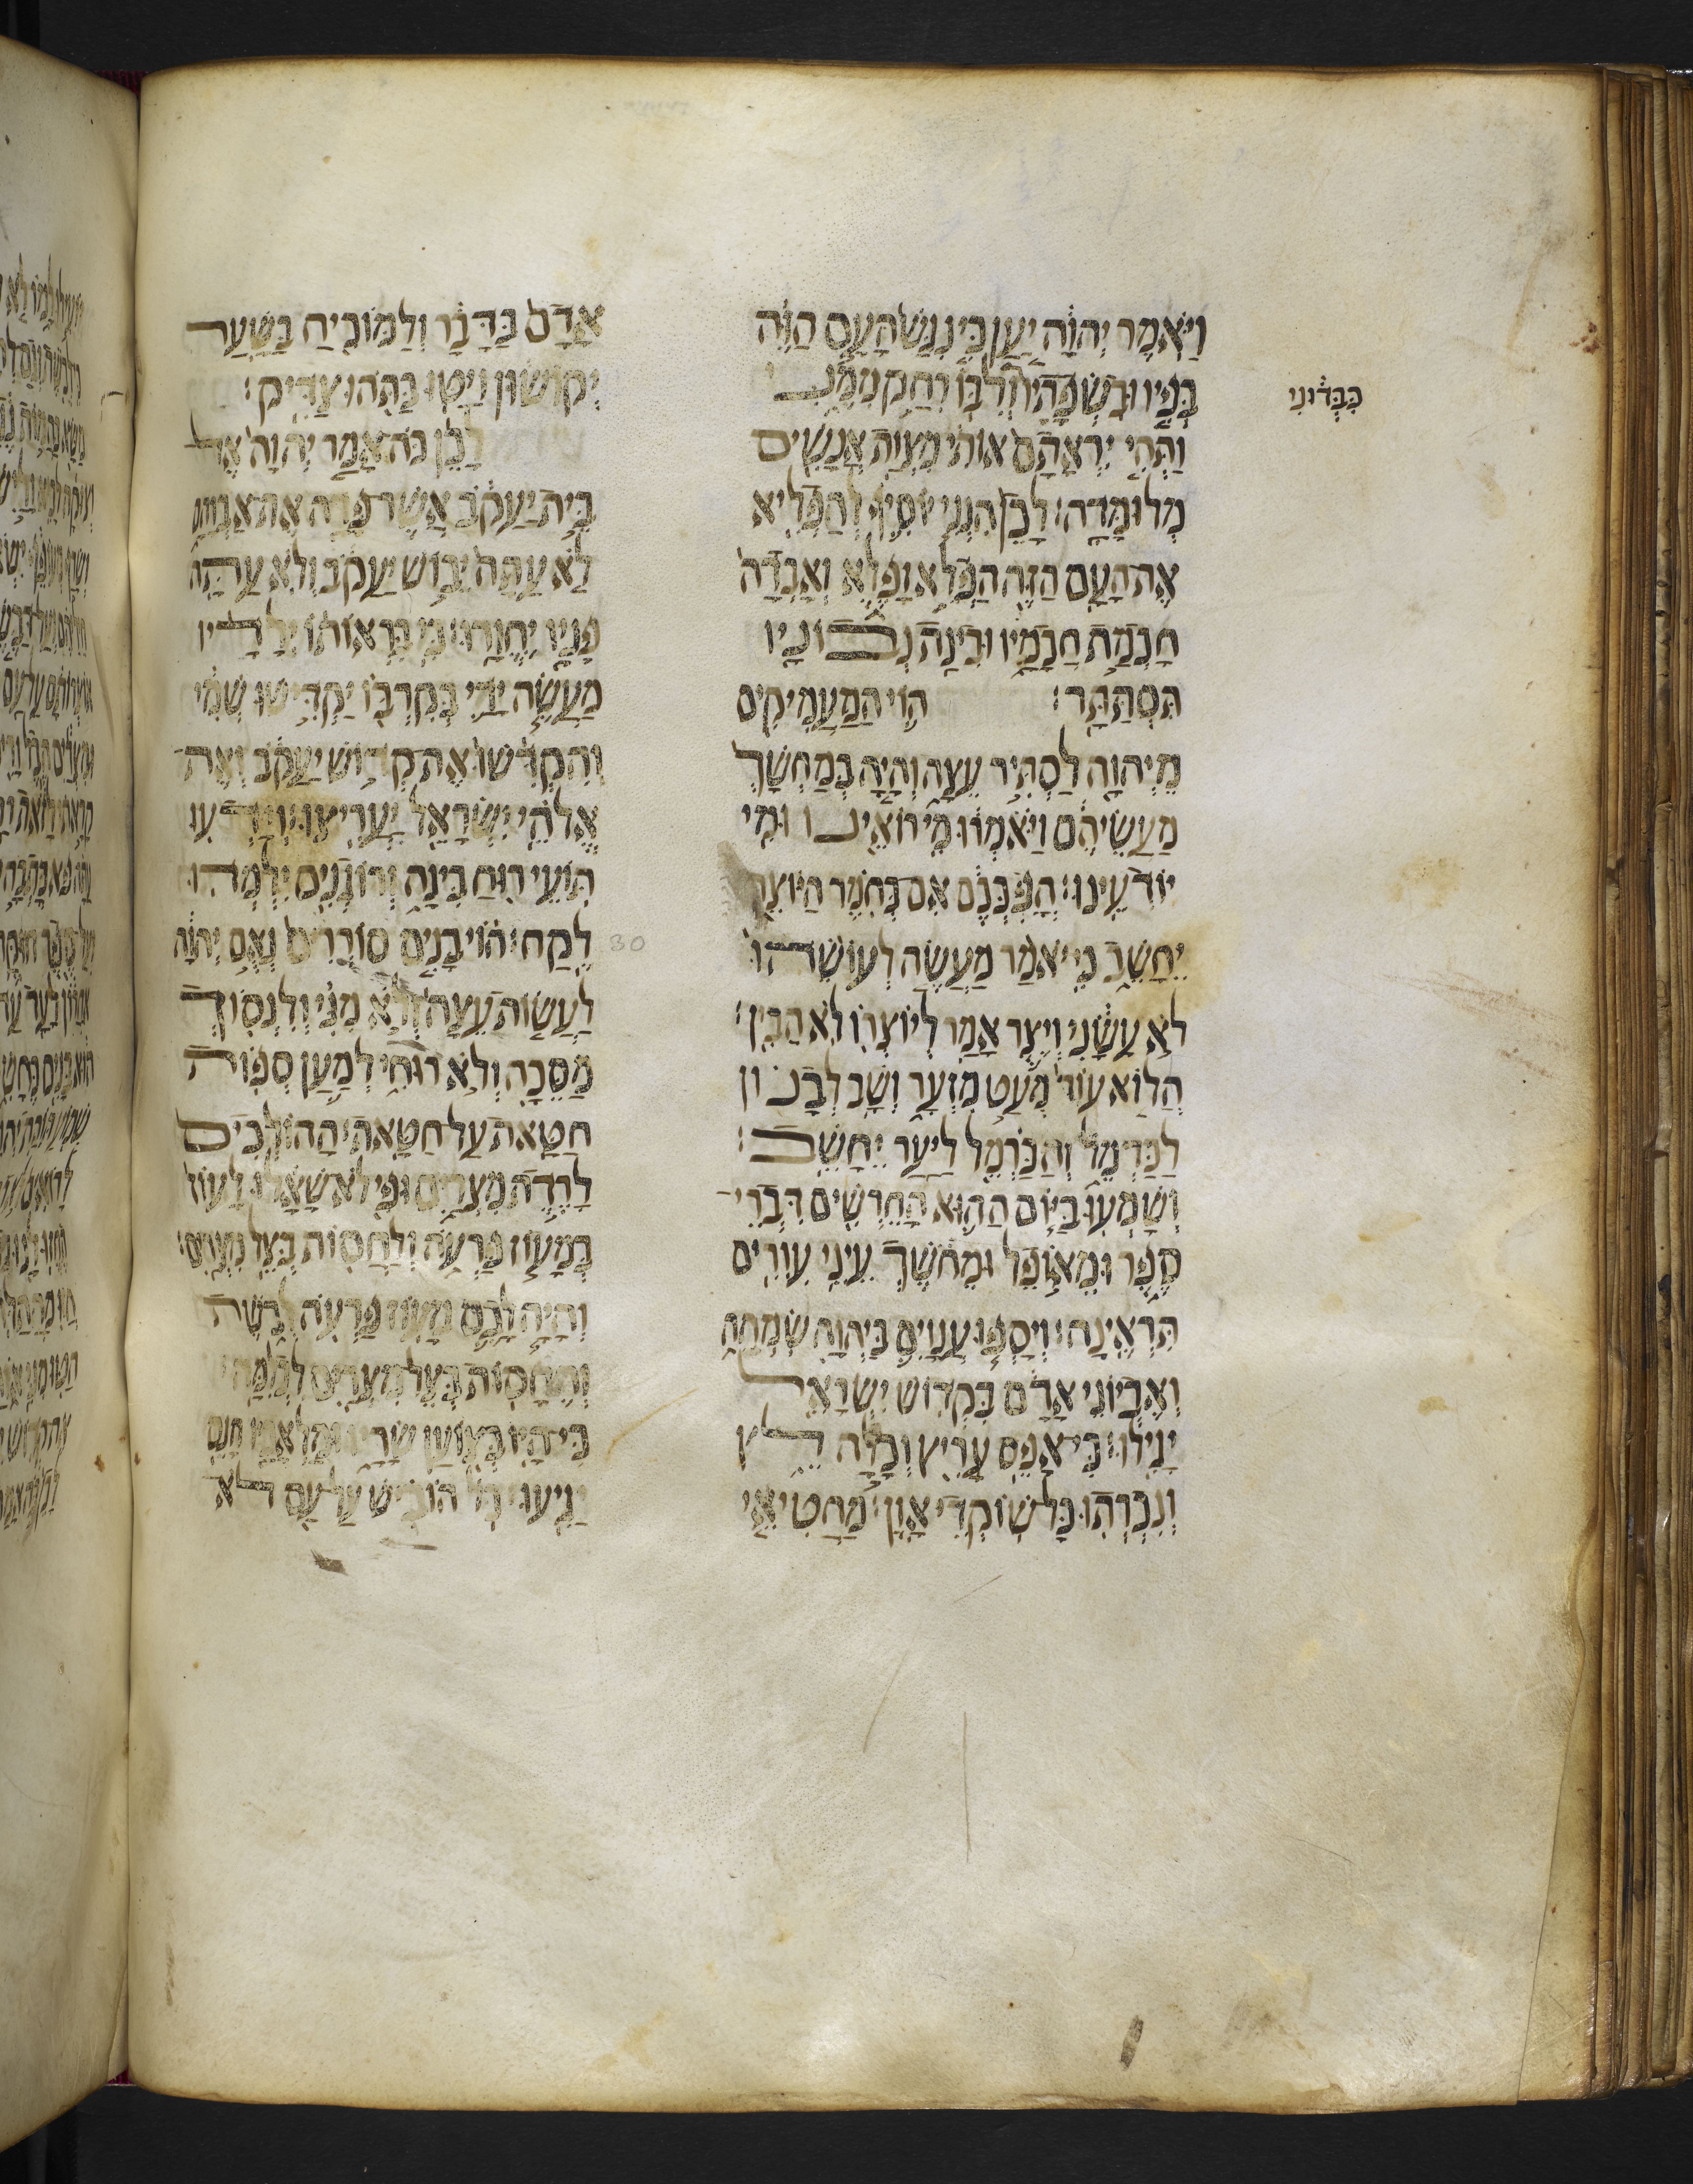 וַיֹּאמֶר יְהוָה יַעַן כִּי נִגַּשׁ הָעָם הַזֶּה
בְּפִיו וּבִשְׂפָתָיו לִבּוֹ רִחַק מִמֶּנִּי
כִּבְּדוּנִי
וַתְּהִי יִרְאָתָם אוֹתִי מִצְוַת אֲנָשִׁים
מְלוּמָּדָה׃ לָכֵן הִנְנִי יוֹסִיף לְהַפְלִיא
אֶת הָעָם הַזֶּה הַפְלֵא וָפֶלֶא וְאָבְדָה
חָכְמַת חֲכָמָיו וּבִינַת נְבוֹנָיו
תִּסְתַּתָּר׃ הוֹי הַמַּעֲמִיקִים
מֵיְהוָה לַסְתִּיר עֵצָה וְהָיָה בְמַחְשָׁךְ
מַעֲשֵׂיהֶם וַיֹּאמְרוּ מִי רוֹאֵינוּ וּמִי
יוֹדְעֵינוּ׃ הָפְכְּכֶם אִם כְּחֹמֶר הַיּוֹצֵר
יֵחָשֵׁב כִּי יֹאמַר מַעֲשֶׂה לְעוֹשֵׂהוּ
לֹא עָשָׂנִי וְיֵצֶר אָמַר לְיוֹצְרוֹ לֹא הֵבִין׃
הֲלוֹא עוֹד מְעַט מִזְעָר וְשָׁב לְבָנוֹן
לַכַּרְמֶל וְהַכַּרְמֶל לַיַּעַר יֵחָשֵׁב׃
וְשָׁמְעוּ בַיּוֹם הַהוּא הַחֵרְשִׁים דִּבְרֵי
סֵפֶר וּמֵאוֹפֶל וּמֵחֹשֶׁךְ עֵינֵי עִוְרִים
תִּרְאֶינָה׃ וְיָסְפוּ עֲנָוִים בַּיהוָה שִׂמְחָה
וְאֶבְיוֹנֵי אָדָם בִּקְדוֹשׁ יִשְׂרָאֵל
יָגִילוּ׃ כִּי אָפֵס עָרִיץ וְכָלָה לֵץ
וְנִכְרְתוּ כָּל שׁוֹקְדֵי אָוֶן׃ מַחֲטִיאֵי
אָדָם בְּדָבָר וְלַמּוֹכִיחַ בַּשַּׁעַר
יְקוֹשׁוּן וַיַּטּוּ בַתֹּהוּ צַדִּיק׃
לָכֵן כֹּה אָמַר יְהוָה אֶל
בֵּית יַעֲקֹב אֲשֶׁר פָּדָה אֶת אַבְרָהָם
לֹא עַתָּה יֵבוֹשׁ יַעֲקֹב וְלֹא עַתָּה
פָּנָיו יֶחֱוָרוּ׃ כִּי בִרְאוֹתוֹ יְלָדָיו
מַעֲשֵׂה יָדַי בְּקִרְבּוֹ יַקְדִּישׁוּ שְׁמִי
וְהִקְדִּשׁוּ אֶת קְדוֹשׁ יַעֲקֹב וְאֶת
אֱלֹהֵי יִשְׂרָאֵל יַעֲרִיצוּ׃ וְיָדְעוּ
תוֹעֵי רוּחַ בִּינָה וְרוֹגְנִים יִלְמְדוּ
לֶקַח׃ הוֹי בָּנִים סוֹרְרִים נְאֻם יְהוָה
30
לַעֲשׂוֹת עֵצָה וְלֹא מִנִּי וְלִנְסוֹךְ
מַסֵּכָה וְלֹא רוּחִי לְמַעַן סְפוֹת
חַטָּאת עַל חַטָּאת׃ הַהוֹלְכִים
לָרֶדֶת מִצְרַיִם וּפִי לֹא שָׁאָלוּ לָעוֹז
בְּמָעוֹז פַּרְעֹה וְלַחְסוֹת בְּצֵל מִצְרָיִם׃
וְהָיָה לָכֶם מָעוֹז פַּרְעֹה לְבֹשֶׁת
וְהֶחָסוּת בְּצֵל מִצְרַיִם לִכְלִמָּה׃
כִּי הָיוּ בְצֹעַן שָׂרָיו וּמַלְאָכָיו חָנֵס
יַגִּיעוּ׃ כֹּל הוֹבִישׁ עַל עַם לֹא